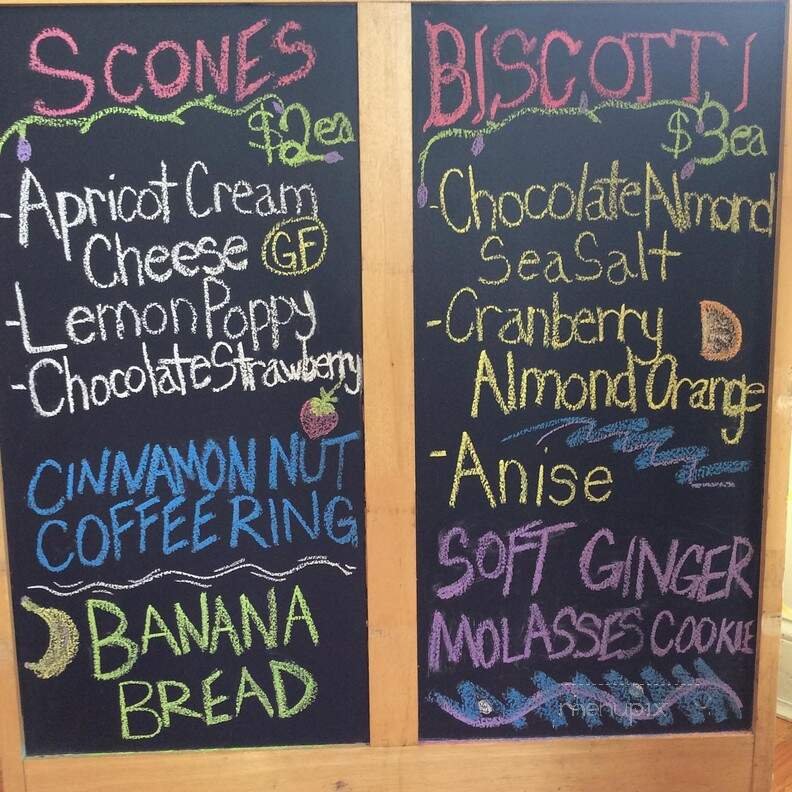 SCONES
$2ea
-Apricot Cream
Cheese GF
-Lemon Poppy
-Chocolate Strawberry
CINNAMON NUT
COFFEE RING
BANANA
BREAD
BISCOTTI
$3ea
-Chocolate Almond
Sea Salt
-Cranberry
Almond Orange
-Anise
SOFT GINGER
MOLASSES COOKIE
menupix